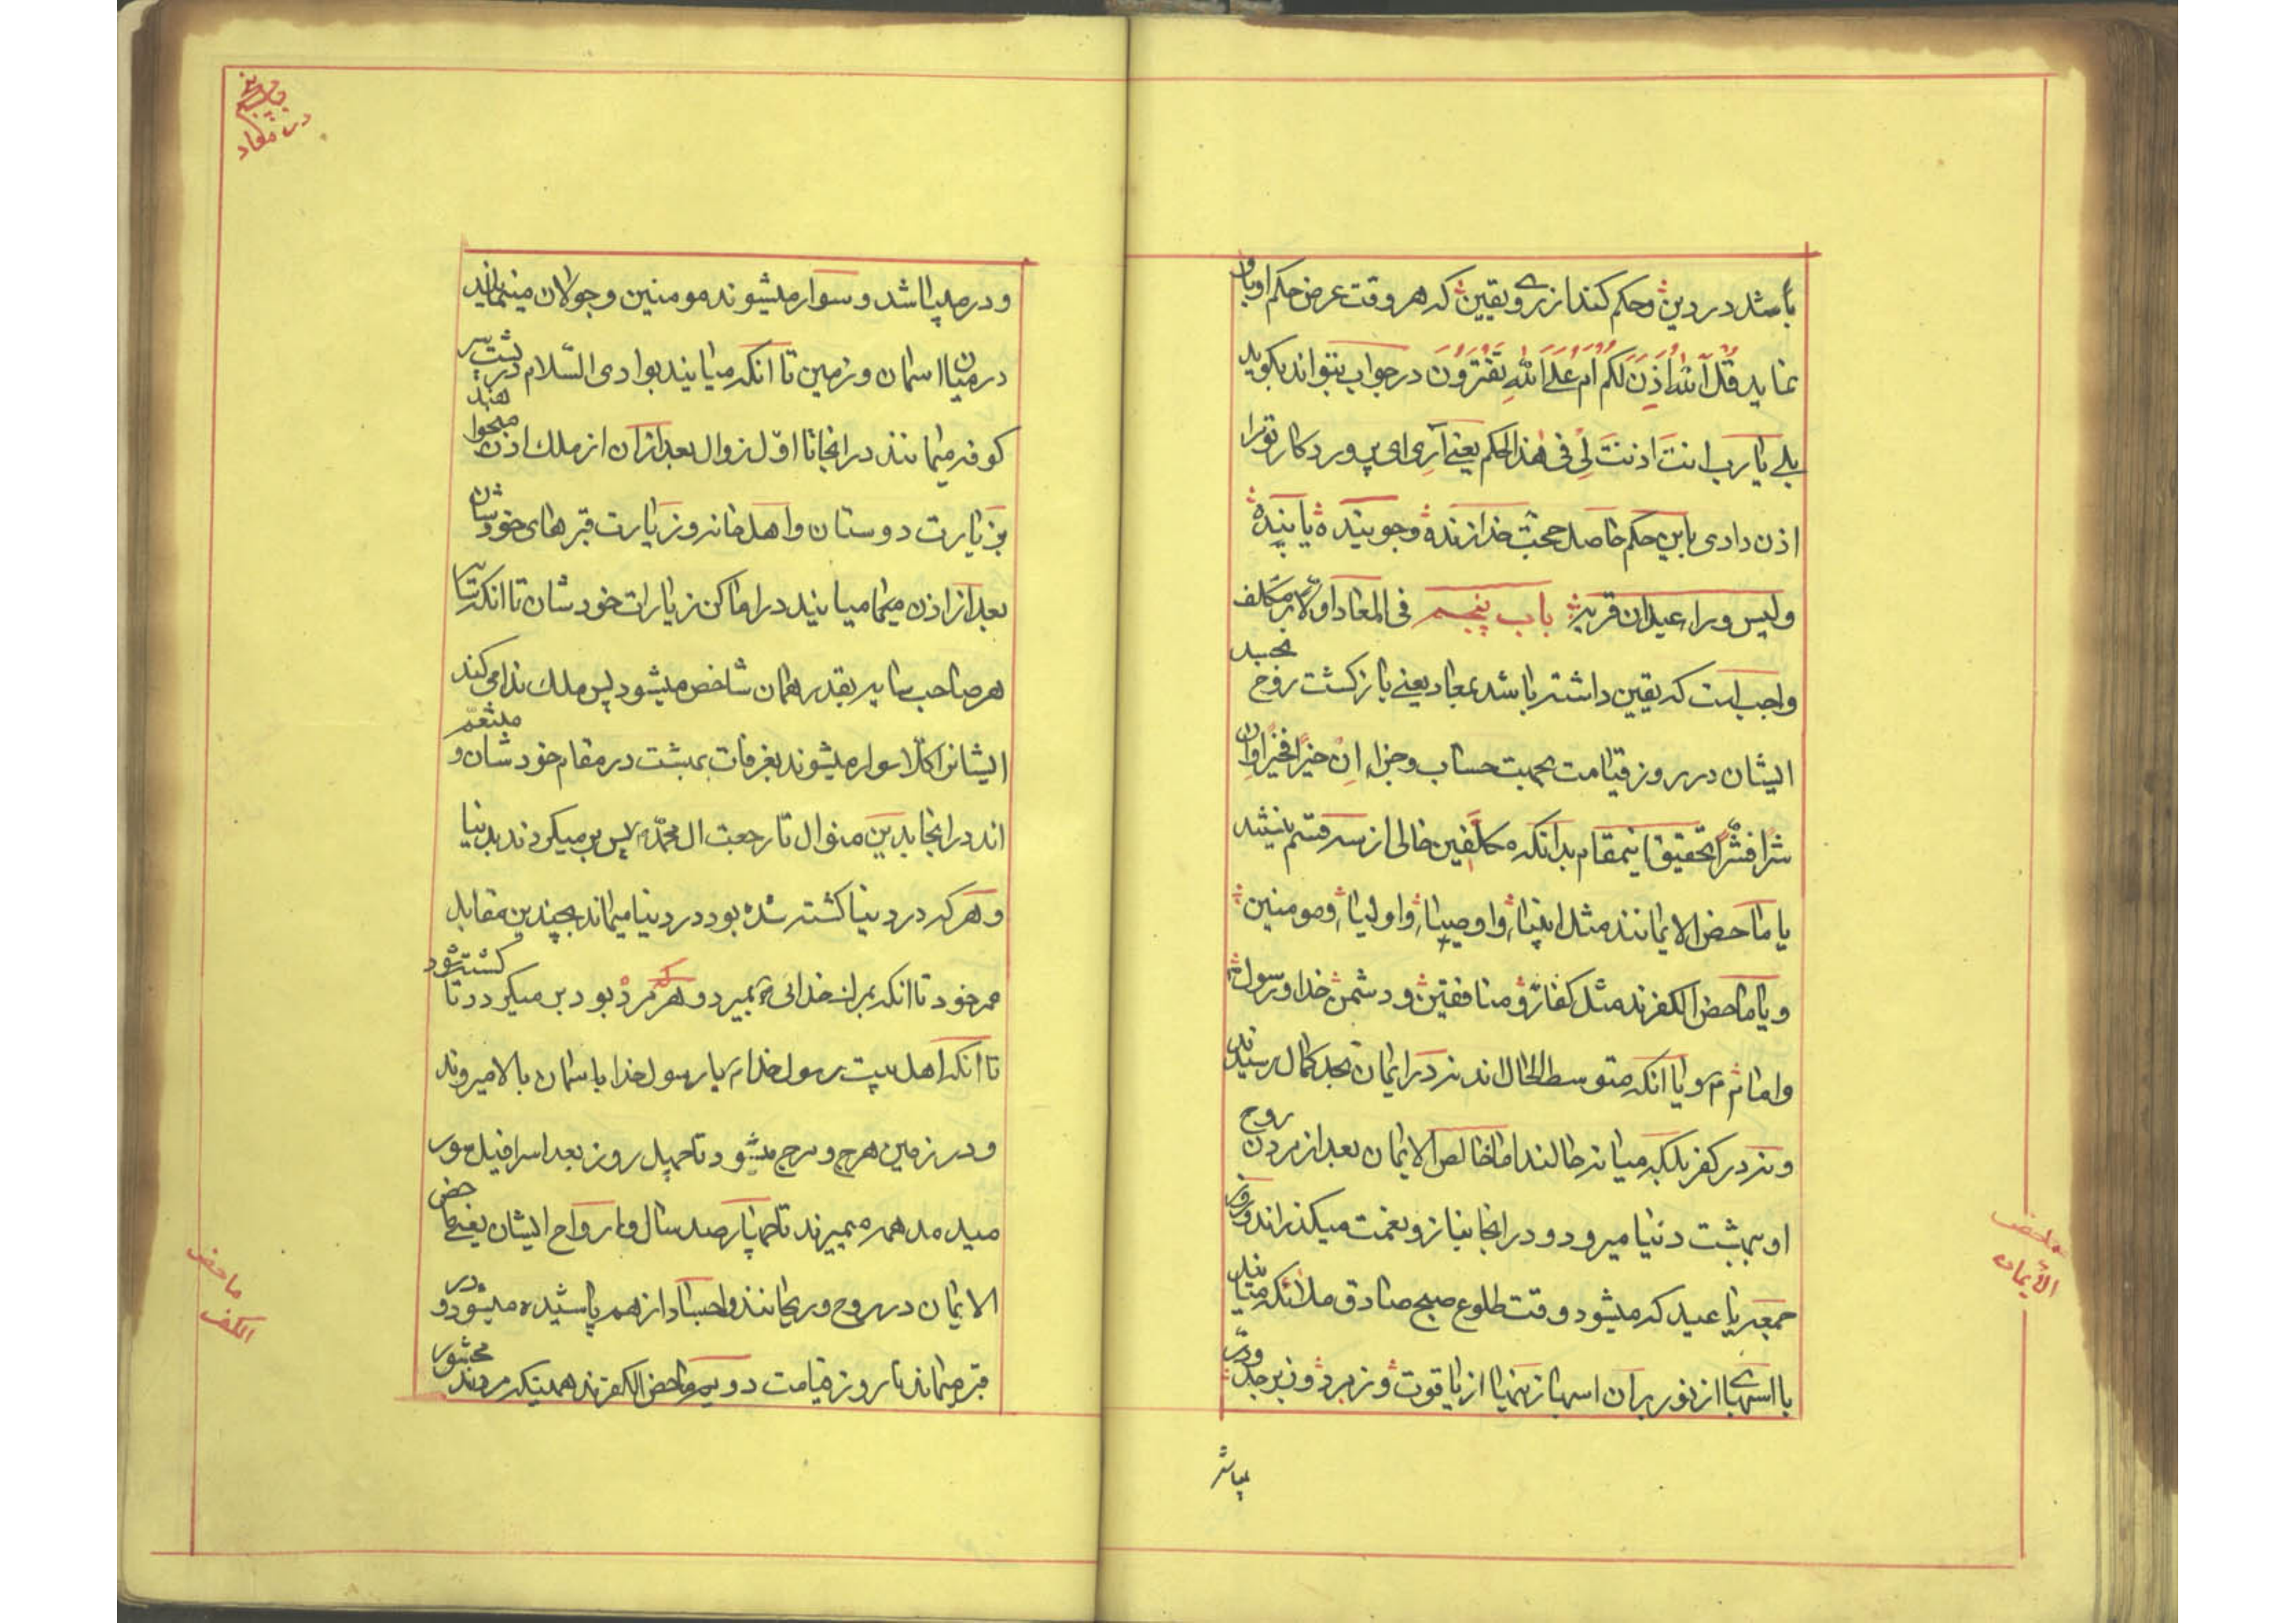 باشد در دین وحکم کند از روی یقین که هر وقت عرض حکم او بان
نماید قُلْ آللهُ اَذِنَ لَکُم اَم عَلَی اللهِ تَفتَرُونَ در جواب بتواند بکوید
بلے یا رب انت اذنتَ لِی فی هذا الحکم یعنے آری ای پروردکار تو مرا
اذن دادی باین حکم حاصل حجت خدا زنده وجوینده یابنده
ولیس وراء عبدان قریه باب پنجم فی المعاد اولا بر مکلف
واجب است که یقین داشته باشد بمعاد یعنے بازکشت روح بجسد
ایشان در روز قیامت بجهت حساب وجزاء اِن خیرا فخیرا وان
شرا فشرا تحقیق اینمقام بدانکه مکلفین خالی از سه قسم نیستند
یا ماحض الایمانند مثل انبیا، واوصیا، واولیا، ومومنین
ویا ماحض الکفرند مثل کفار و منافقین ودشمن خدا ورسول
واما ویا انکه متوسط الحال اند نه در ایمان بحد کمال رسیدند
ونه در کفر بلکه میانه حالند اما خالص الایمان بعد از مردن روح
او ببهشت دنیا میرود ودر انجا بناز ونعمت میکذراند وروز
جمعه یا عید که میشود وقت طلوع صبح صادق ملائکه میایند
با اسبهای از نور بران اسبها زینها از یاقوت وزمرد وزبرجد ودر
میباشد
ماحض
الأیمان
باب پنجم
در معاد
ودر میباشد وسوار میشوند مومنین وجولان مینمایند
درمیان اسمان وزمین تا انکه میایند بوادی السّلام در پشت
کوفه میمانند در انجا تا اوّل زوال بعد ازان از ملک اذن میخواهند
بزیارت دوستان واهل خانه وزیارت قبرهای خودشان
بعد از اذن میایند در اماکن زیارات خودشان تا انکه سایه
هر صاحب سایه بقدر همان شاخص میشود پس ملک ندا می کند
ایشانرا کلّا سوار میشوند بغرفات بهشت در مقام خودشان و متنعّم
اند در انجا بدین منوال تا رجعت ال محمّد پس بر میکردند بدنیا
وهر که در دنیا کشته شده بود در دنیا میماند بچندین مقابل
عمر خود تا انکه بمیرد وهر که مرد بود بر میکردد تا کشته شود
تا انکه اهل بیت رسول خدا با رسول خدا باسمان بالا میروند
ودر زمین هرج ومرج میشود تا چهل روز بعد اسرافیل صور
میدمد همه میمیرند تا چهارصد سال وارواح ایشان یعنے ماحض
الایمان در روح وریحانند واجساد از هم پاشیده میشود و در
قبر میماند تا روز قیامت دویم ماحض الکفرند همینکه مردند محشور
ماحض
الکفر